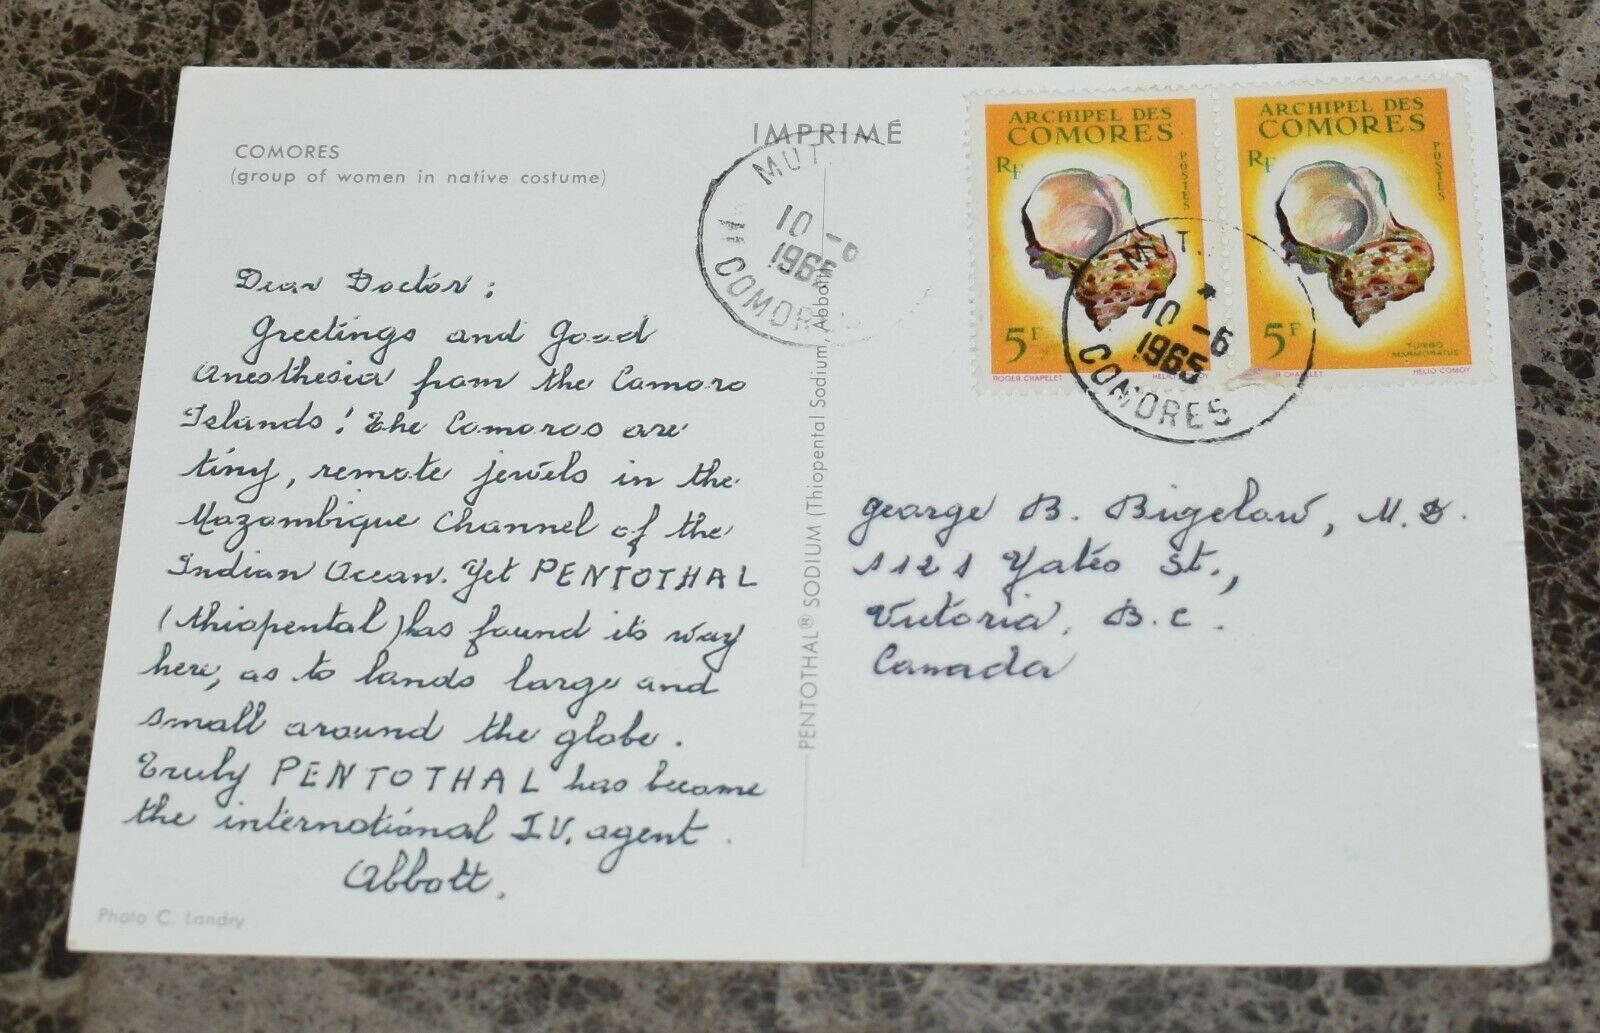 COMORES
(group of women in native costume)
Dear Doctor:
Greetings and good
Anesthesia from the Comoro
Islands! The Comoros are
tiny, remote jewels in the
Mozambique Channel of the
Indian Ocean. Yet PENTOTHAL
(thiopental) has found its way
here, as to lands large and
small around the globe.
Truly PENTOTHAL has become
the international I.V. agent.
Abbott.
Photo C. Landry
PENTOTHAL® SODIUM (Thiopental Sodium, Abbott)
IMPRIMÉ
MUT
10 -6
1965
COMORES
ARCHIPEL DES
COMORES
RF
POSTES
5F
ROGER CHAPELET
HELIO COMOY
ARCHIPEL DES
COMORES
RF
POSTES
5F
TURBO
MARMORATUS
R CHAPELET
HELIO COMOY
MUT.
*
10 -6
1965
COMORES
George B. Bigelow, M.D.
1121 Yates St.,
Victoria, B.C.
Canada